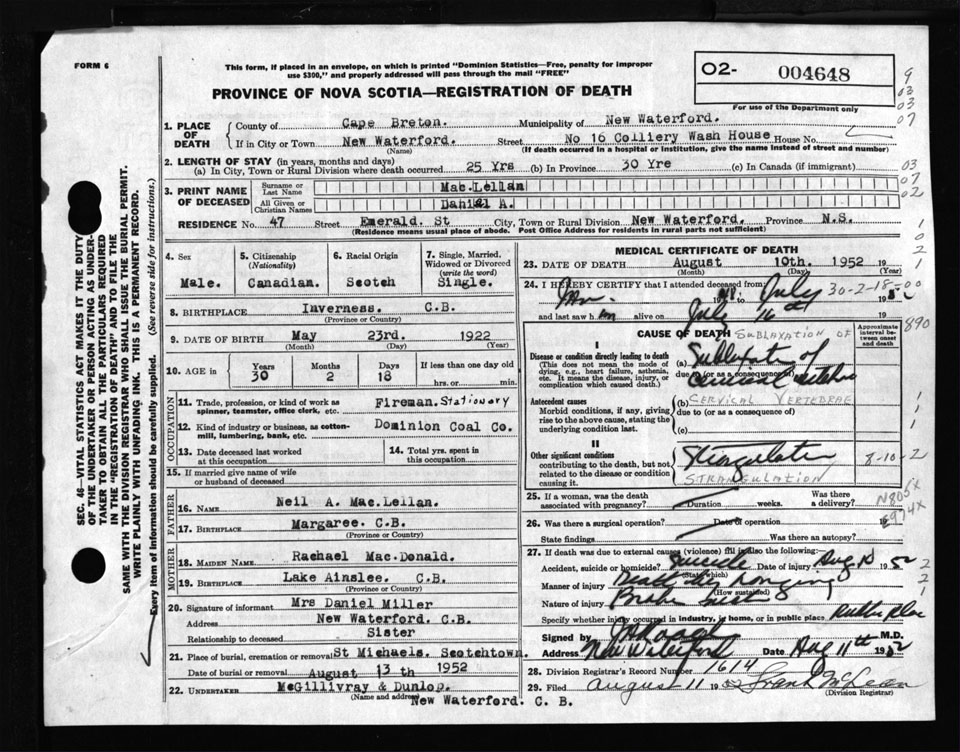 FORM 6
This form, if placed in an envelope, on which is printed "Dominion Statistics—Free, penalty for improper
use $300," and properly addressed will pass through the mail "FREE"
O2- 004648
For use of the Department only
PROVINCE OF NOVA SCOTIA—REGISTRATION OF DEATH
9
03
03
07
1. PLACE OF DEATH
County of Cape Breton. Municipality of New Waterford.
If in City or Town New Waterford. Street No 16 Colliery Wash House House No.
(Name) (If death occurred in a hospital or institution, give the name instead of street and number)
2. LENGTH OF STAY (in years, months and days)
(a) In City, Town or Rural Division where death occurred 25 Yrs (b) In Province 30 Yre (c) In Canada (if immigrant)
03
07
02
3. PRINT NAME OF DECEASED
Surname or Last Name Mac.Lellan
All Given or Christian Names Daniel A.
RESIDENCE No. 47 Street Emerald. St City, Town or Rural Division New Waterford. Province N.S.
(Residence means usual place of abode. Post Office Address for residents in rural parts not sufficient)
4. Sex
Male.
5. Citizenship (Nationality)
Canadian.
6. Racial Origin
Scotch
7. Single, Married, Widowed or Divorced (write the word)
Single.
8. BIRTHPLACE Inverness. C.B.
(Province or Country)
9. DATE OF BIRTH May 23rd. 1922
(Month) (Day) (Year)
10. AGE in Years Months Days If less than one day old
30 2 18 hrs. or min.
OCCUPATION
11. Trade, profession, or kind of work as spinner, teamster, office clerk, etc. Fireman. Stationary
12. Kind of industry or business, as cotton-mill, lumbering, bank, etc. Dominion Coal Co.
13. Date deceased last worked at this occupation
14. Total yrs. spent in this occupation
15. If married give name of wife or husband of deceased
FATHER
16. NAME Neil A. Mac.Lellan.
17. BIRTHPLACE Margaree. C.B.
(Province or Country)
MOTHER
18. MAIDEN NAME Rachael Mac.Donald.
19. BIRTHPLACE Lake Ainslee. C.B.
(Province or Country)
20. Signature of informant Mrs Daniel Miller
Address New Waterford. C.B.
Relationship to deceased Sister
21. Place of burial, cremation or removal St Michaels. Scotchtown.
Date of burial or removal August 13 th 1952
22. UNDERTAKER McGillivray & Dunlop.
(Name and address)
New Waterford. C. B.
MEDICAL CERTIFICATE OF DEATH
23. DATE OF DEATH August 10th. 1952 19
(Month) (Day) (Year)
24. I HEREBY CERTIFY that I attended deceased from: July 30-2-18-00
and last saw h im alive on July 16th
CAUSE OF DEATH
SUBLAXATION OF
Approximate interval between onset and death
890
I
Disease or condition directly leading to death
(This does not mean the mode of dying, e.g., heart failure, asthenia, etc. It means the disease, injury, or complication which caused death.
(a) Subluxation of
due to (or as a consequence of)
cervical
Antecedent causes
Morbid conditions, if any, giving rise to the above cause, stating the underlying condition last.
(b) CERVICAL VERTEBRAE
due to (or as a consequence of)
(c)
II
Other significant conditions
contributing to the death, but not related to the disease or condition causing it.
Strangulation
STRANGULATION
8-10-2
25. If a woman, was the death associated with pregnancy? Duration weeks. Was there a delivery?
26. Was there a surgical operation? Date of operation 19
State findings Was there an autopsy?
27. If death was due to external causes (violence) fill in also the following:
Accident, suicide or homicide? Suicide Date of injury Aug 10 1952
(State which)
Manner of injury Death by hanging
(How sustained)
Nature of injury Broken neck
Specify whether injury occurred in industry, in home, or in public place Public place
Signed by M.D.
Address New Waterford Date Aug 11th 1952
28. Division Registrar's Record Number 1614
29. Filed August 11 1952 Frank McLean
(Division Registrar)
SEC. 46—VITAL STATISTICS ACT MAKES IT THE DUTY
OF THE UNDERTAKER OR PERSON ACTING AS UNDER-
TAKER TO OBTAIN ALL THE PARTICULARS REQUIRED
IN THE "REGISTRATION OF DEATH" AND TO FILE THE
SAME WITH THE DIVISION REGISTRAR WHO SHALL ISSUE THE BURIAL PERMIT.
WRITE PLAINLY WITH UNFADING INK. THIS IS A PERMANENT RECORD.
Every item of information should be carefully supplied. (See reverse side for instructions.)